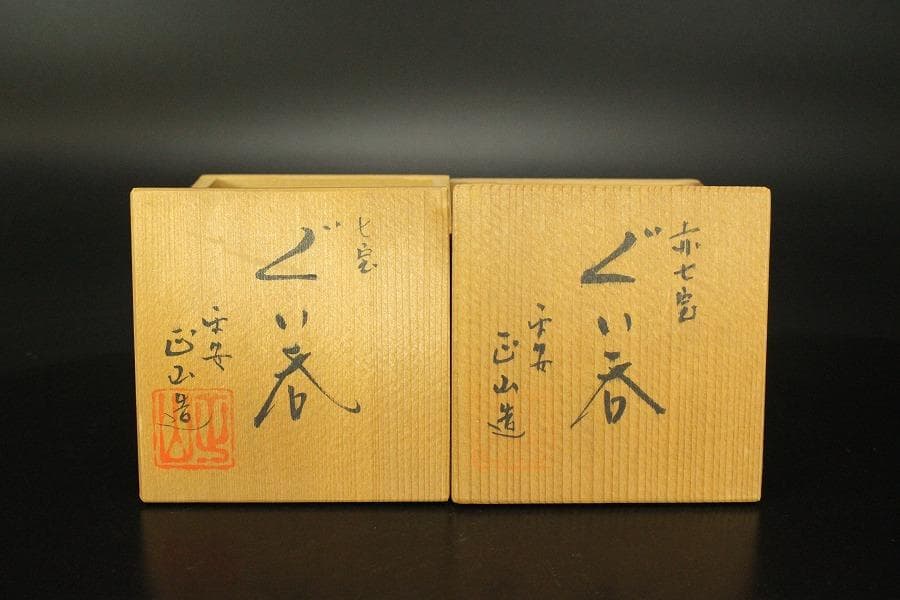 七宝
ぐい呑
平安
正山造
正山
赤七宝
ぐい呑
平安
正山造